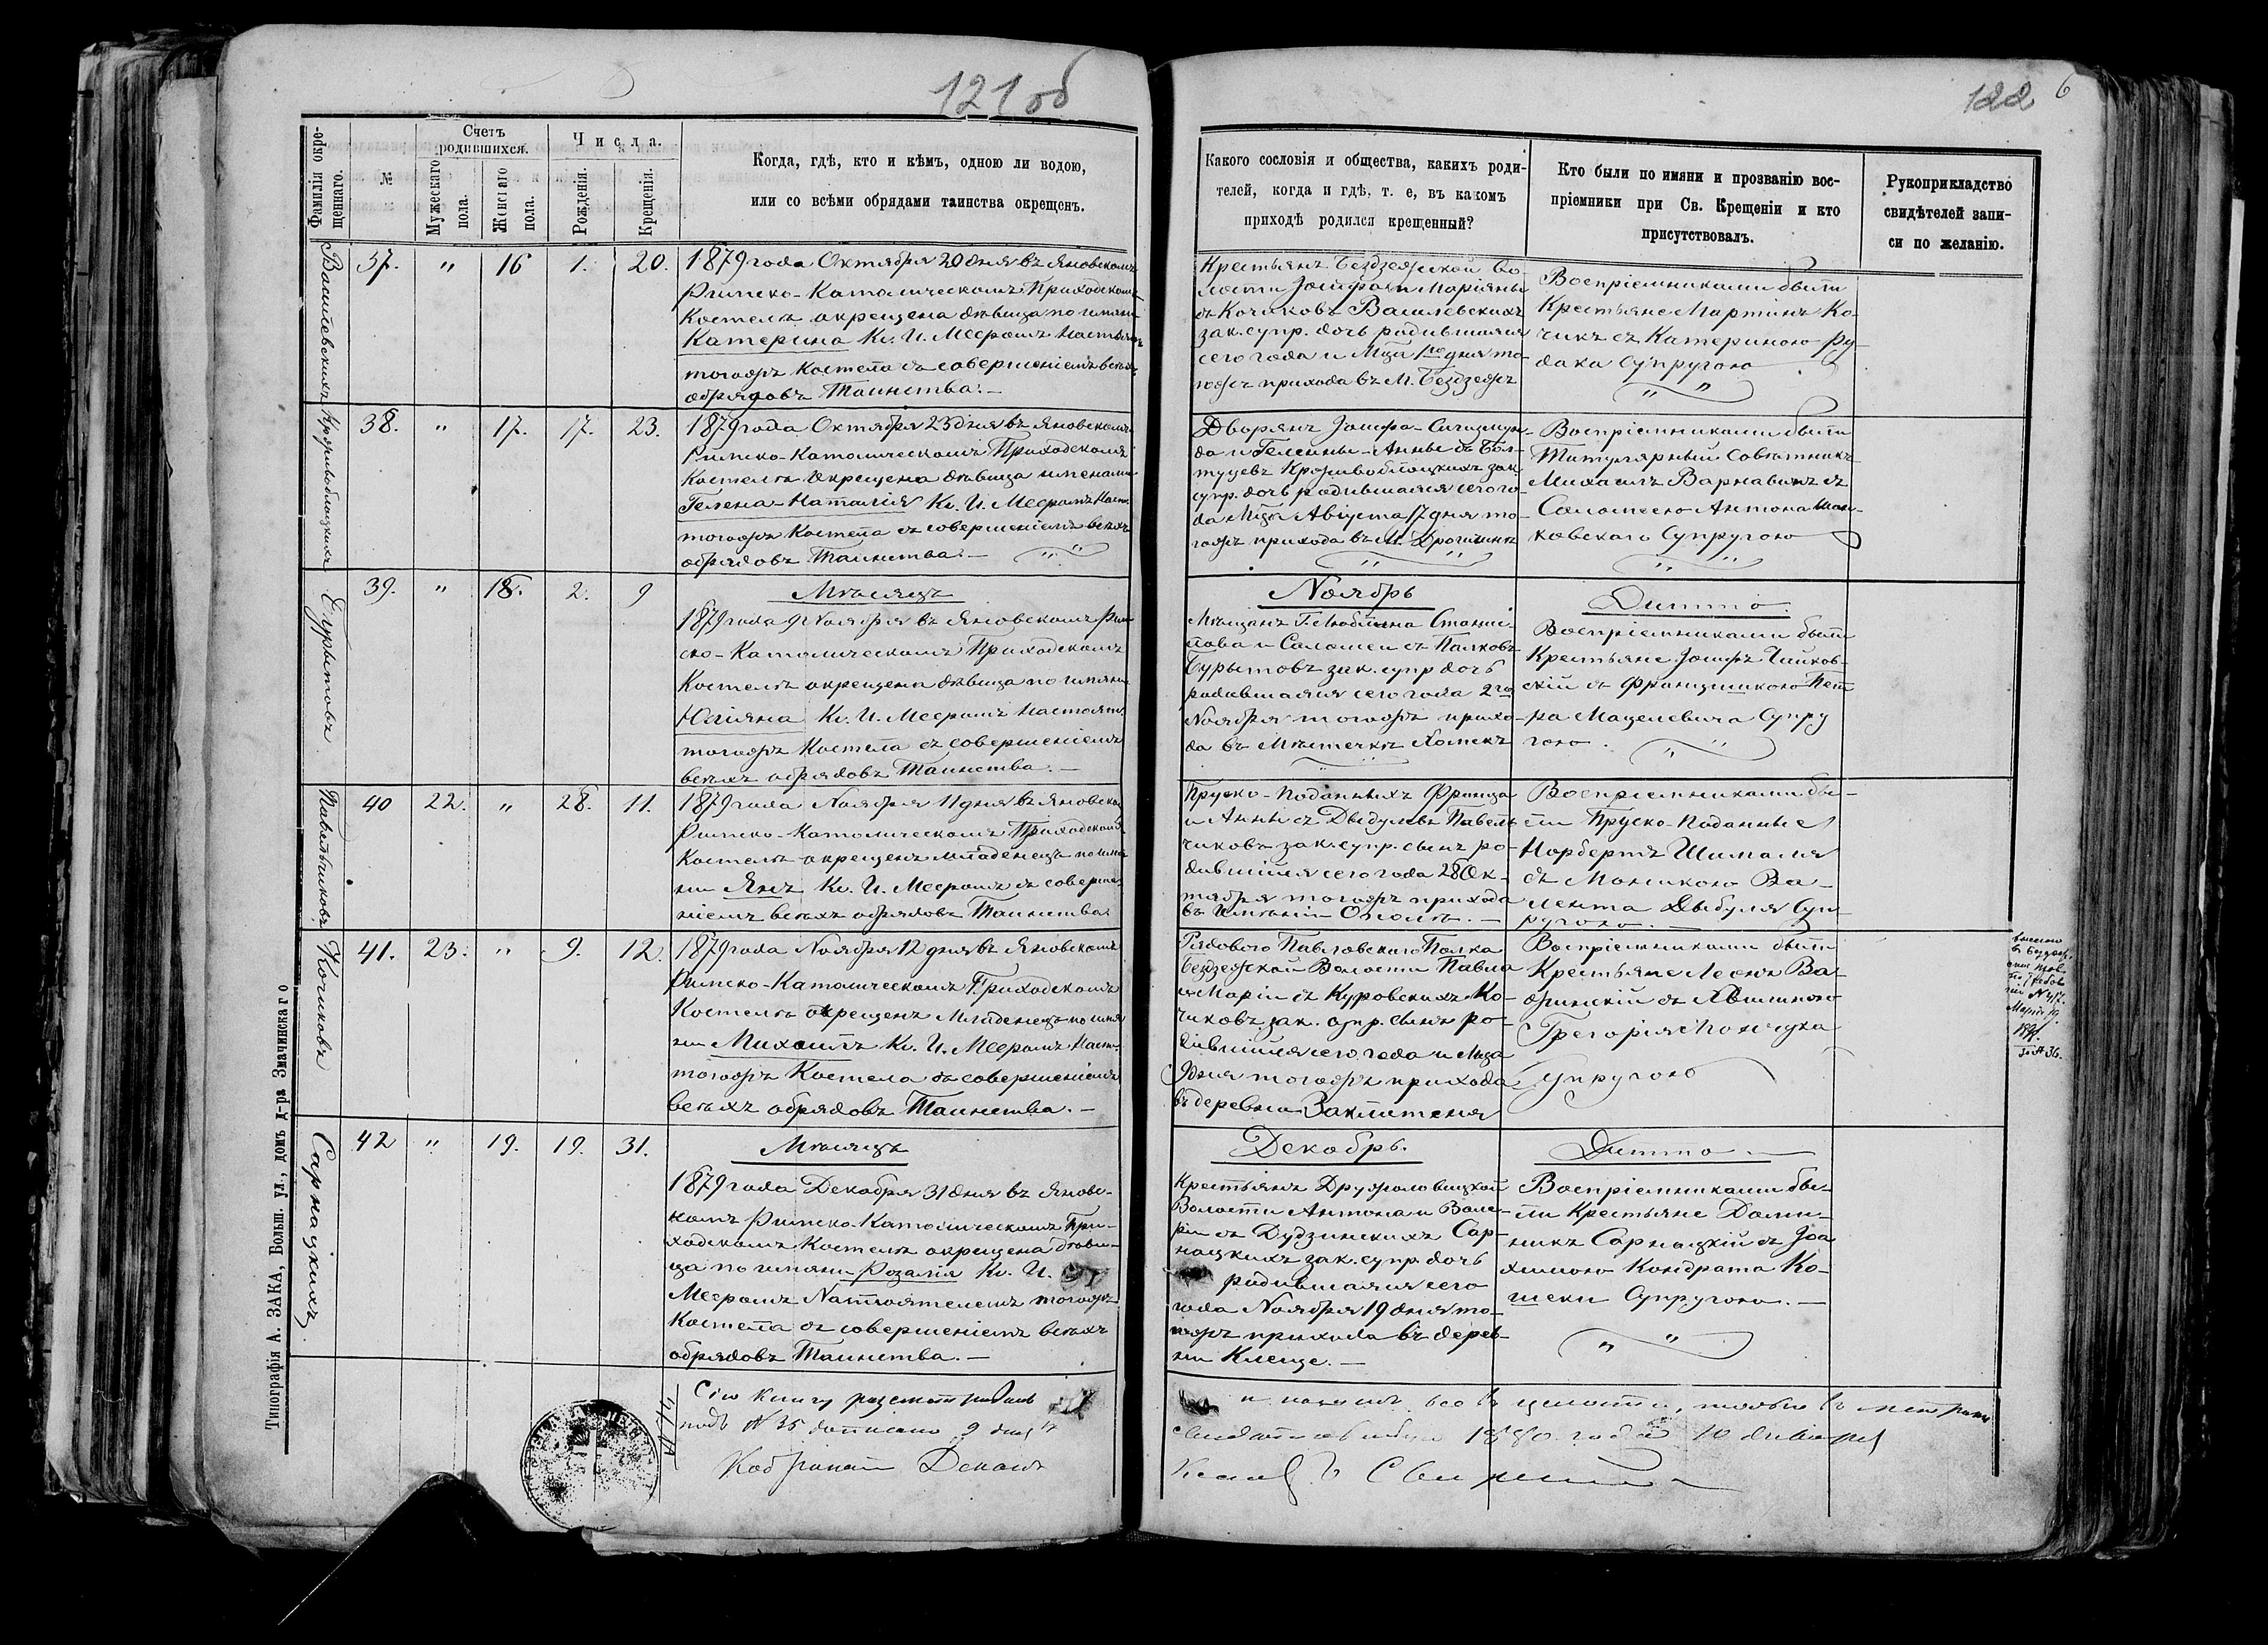 121 об
Фамилія окре-
щеннаго.
№
Счетъ
родившихся.
Мужескаго
пола.
Женскаго
пола.
Числа.
Рожденія.
Крещенія.
Когда, гдѣ, кто и кѣмъ, одною ли водою,
или со всѣми обрядами таинства окрещенъ.
Василевскихъ
37.
"
16
1.
20.
1879 года Октября 20 дня въ Яновскомъ
Римско-Католическомъ Приходскомъ
Костелѣ окрещена дѣвица по имяни
Катерина Кс. И. Мееромъ Настоят.
тогожъ Костела съ совершеніемъ всѣхъ
обрядовъ Таинства.—
Крживоблоцкихъ
38.
"
17.
17.
23.
1879 года Октября 23 дня въ Яновскомъ
Римско-Католическомъ Приходскомъ
Костелѣ окрещена дѣвица именами
Гелена-Наталія Кс. И. Мееромъ Наст.
тогожъ Костела съ совершеніемъ всѣхъ
обрядовъ Таинства.—
Бурытовъ
39.
"
18.
2.
9
Мѣсяцъ
1879 года 9 Ноября въ Яновскомъ Рим
ско-Католическомъ Приходскомъ
Костелѣ окрещена дѣвица по имяни
Юліяна Кс. И. Мееромъ Настоят.
тогожъ Костела съ совершеніемъ
всѣхъ обрядовъ Таинства.—
Павельчиковъ
40
22.
"
28.
11.
1879 года Ноября 11 дня въ Яновском
Римско-Католическомъ Приходскомъ
Костелѣ окрещенъ младенецъ по имя
ни Янъ Кс. И. Мееромъ съ соверше
ніемъ всѣхъ обрядовъ Таинства
Кочиковъ
41.
23.
"
9.
12.
1879 года Ноября 12 дня въ Яновскомъ
Римско-Католическомъ Приходскомъ
Костелѣ окрещенъ младенецъ по имя
ни Михаилъ Кс. И. Мееромъ Наст.
тогожъ Костела съ совершеніемъ
всѣхъ обрядовъ Таинства.—
Сарнацкихъ
42
"
19.
19.
31.
Мѣсяцъ
1879 года Декабря 31 дня въ Яновс-
комъ Римско-Католическомъ При-
ходскомъ Костелѣ окрещена дѣви-
ца по имяни Розалія Кс. И.
Мееромъ Настоятелемъ тогожъ
Костела съ совершеніемъ всѣхъ
обрядовъ Таинства.—
Сію книгу разсматривалъ
подъ № 35 дописано
Кобринскій Деканъ
Типографія А. ЗАКА, Больш. ул., домъ д-ра Змачинскаго
122
6
Какого сословія и общества, какихъ роди-
телей, когда и гдѣ, т. е, въ какомъ
приходѣ родился крещенный?
Кто были по имяни и прозванію вос-
пріемники при Св. Крещеніи и кто
присутствовалъ.
Рукоприкладство
свидѣтелей запи-
си по желанію.
Крестьянъ Бездзежской во-
лости Іосифа и Маріяны
съ Кочиковъ Василевскихъ
зак. супр. дочь родившаяся
сего года и Мца 1го дня то-
гожъ прихода въ М. Бездзежъ
Воспріемниками были
Крестьяне Мартинъ Ко-
чикъ съ Катериною Ру-
дака Супругою
Дворянъ Іосифа-Сигизмун-
да и Гелены-Анны съ Бол-
туцевъ Крживоблоцкихъ зак.
супр. дочь родившаяся сего го-
да Мца Августа 17 дня то-
гожъ прихода въ М. Дрогичинѣ
Воспріемниками были
Титулярный Совѣтникъ
Михаилъ Варнавинъ съ
Саломеею Антона
ковскаго Супругою
Ноябрь
Мѣщанъ Г. Люблина Станис
лава и Саломеи съ Палковъ
Бурытовъ зак. супр. дочь
родившаяся сего года 2го
Ноября тогожъ прихо-
да въ Мѣстечкѣ Хомскъ
Дитто
Воспріемниками были
Крестьяне Іосифъ Чайков-
скій съ Францишкою Пет
ра Мацелевича Супру
гою.
Пруско-Поданныхъ Франца
и Анны съ Двыдулевъ Павель
чиковъ зак. супр. сынъ ро-
дившійся сего года 28 Ок-
тября тогожъ прихода
въ Имѣніи Ополь.—
Воспріемниками бы-
ли Пруско-Поданные
Норбертъ Шималя
съ Моникою Ва-
лента Двыдуля Суп-
ругою.—
Рядового Павловскаго Полка
Бездзежской Волости Павла
и Маріи съ Куровскихъ Ко-
чиковъ зак. супр. сынъ ро-
дившійся сего года и Мца
9 дня тогожъ прихода
въ деревни Заклетеня
Воспріемниками были
Крестьяне Леонъ Ва-
жинскій съ
Грегорія
Супругою
Декабрь.
Крестьянъ Дружиловицкой
Волости Антона и Вале-
ріи съ Дудзинскихъ Сар-
нацкихъ зак. супр. дочь
родившаяся сего
года Ноября 19 дня то-
гожъ прихода въ дерев-
ни Клеще.—
Дитто.—
Воспріемниками бы-
ли Крестьяне Доми-
никъ Сарнацкій съ Іоа
химою Кондрата Ко-
шеки Супругою.—
1880 года 10 Января